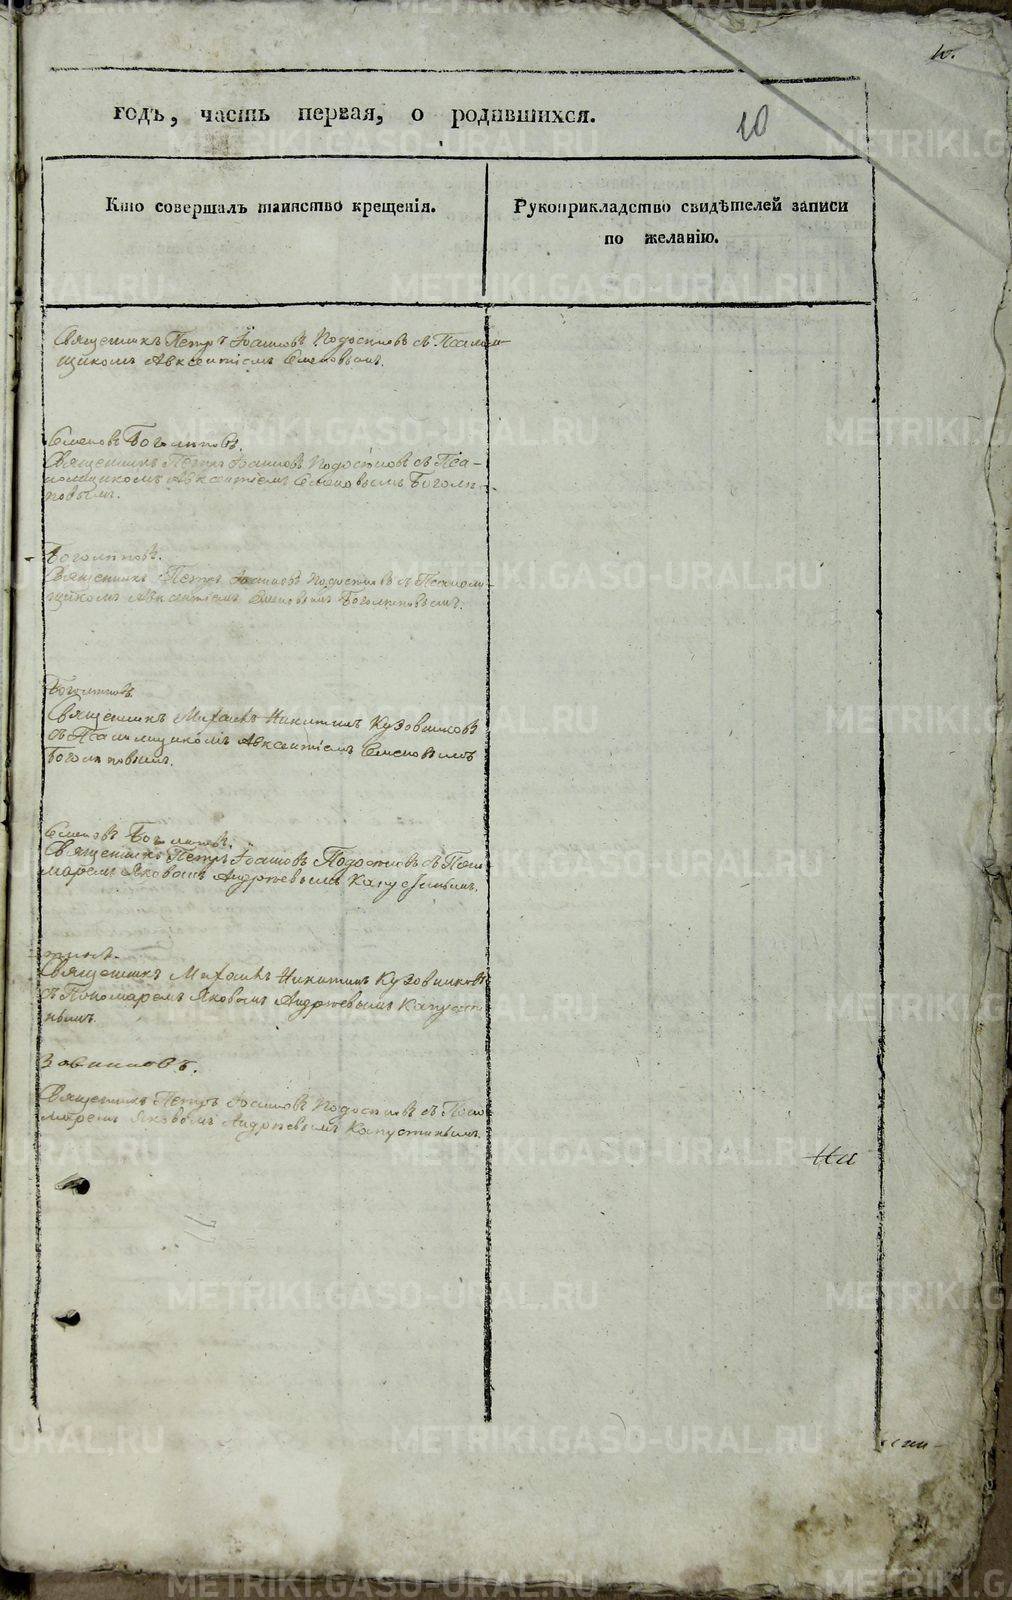 10.
годъ, часть первая, о родившихся.
10
Кто совершалъ таинство крещенія.
Рукоприкладство свидѣтелей записи
по желанію.
Священникъ Петръ Іоанновъ съ Псалом-
щикомъ Авксентіемъ Семеновымъ.
Семеновъ Боголѣповъ.
Священникъ Петръ Іоанновъ съ Пса-
ломщикомъ Авксентіемъ Семеновымъ Боголѣ-
повымъ.
Боголѣповъ.
Священникъ Петръ Іоанновъ съ Псалом-
щикомъ Авксентіемъ Семеновымъ Боголѣповымъ.
Боголѣповъ.
Священникъ Михаилъ Никитинъ Кузовниковъ
съ Псаломщикомъ Авксентіемъ Семеновымъ
Боголѣповымъ.
Семеновъ Боголѣповъ.
Священникъ Петръ Іоанновъ съ Поно
маремъ Яковомъ Андреевымъ Капустинымъ.
тинъ.
Священникъ Михаилъ Никитинъ Кузовниковъ
съ Пономаремъ Яковомъ Андреевымъ Капусти
нымъ.
Священникъ Петръ Іоанновъ съ Поно
маремъ Яковомъ Андреевымъ Капустинымъ.
METRIKI.GASO-URAL.RU